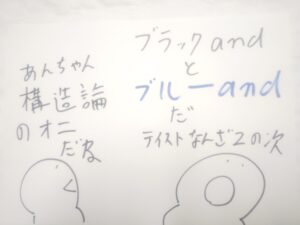 あんちゃん
構造論
のオニ
だね
ブラックand
と
ブルーand
だ
テイストなんざ2の次